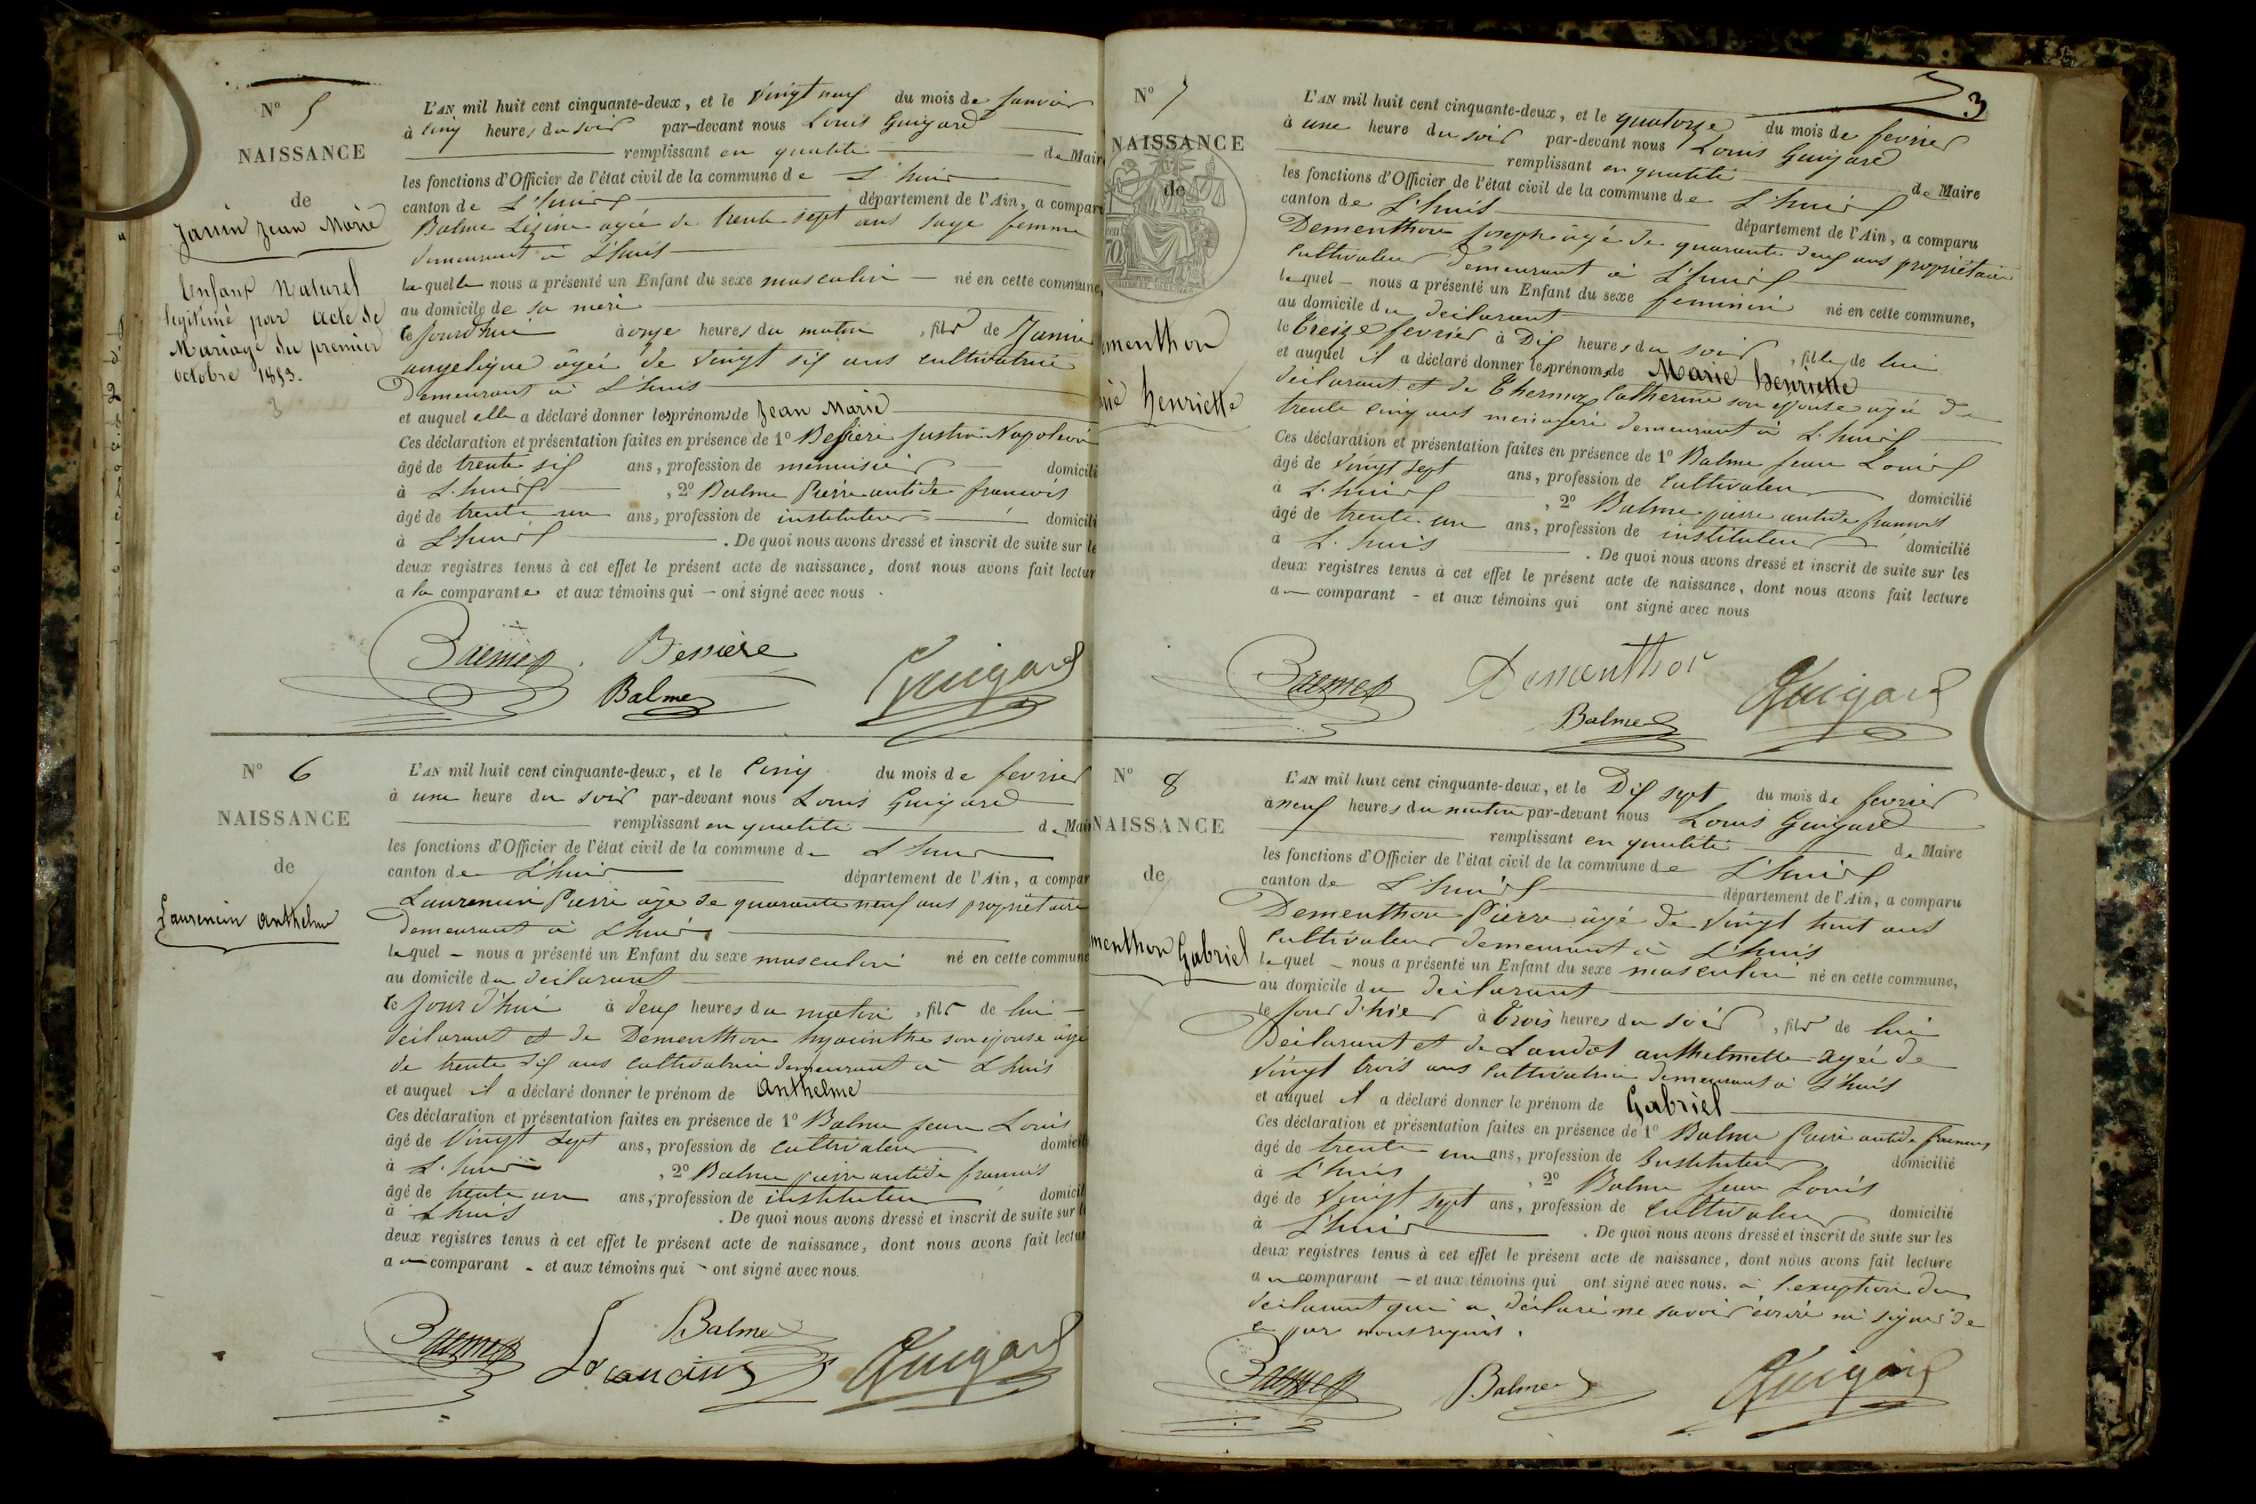 N° 5
NAISSANCE
de
Janin Jean Marie
Enfant Naturel
legitimé par acte de
Mariage du premier
octobre 1853.
L'AN mil huit cent cinquante-deux, et le vingt neuf du mois de janvier
à cinq heures du soir par-devant nous Louis Guigard
remplissant en qualité de Maire
les fonctions d'Officier de l'état civil de la commune de L'huis
canton de L'huis département de l'Ain, a compar
Balme agée de trente sept ans sage femme
demeurant à L'huis
laquelle nous a présenté un Enfant du sexe masculin né en cette commune,
au domicile de sa mère
ce jourd'hui à onze heures du matin, fils de Janin
angelique âgée de vingt six ans cultivatrice
Demeurant à L'huis
et auquel elle a déclaré donner les prénoms de Jean Marie
Ces déclaration et présentation faites en présence de 1° Bessiere Justin Napoléon
âgé de trente six ans, profession de menuisier domicili
à L'huis, 2° Balme Pierre antide francois
âgé de trente un ans, profession de instituteur domicili
à L'huis. De quoi nous avons dressé et inscrit de suite sur le
deux registres tenus à cet effet le présent acte de naissance, dont nous avons fait lectur
a la comparante et aux témoins qui ont signé avec nous.
Bessiere
Balme
Guigard
N° 6
NAISSANCE
de
Laurencin Anthelme
L'AN mil huit cent cinquante-deux, et le cinq du mois de fevrier
à une heure du soir par-devant nous Louis Guigard
remplissant en qualité de Mai
les fonctions d'Officier de l'état civil de la commune de L'huis
canton de L'huis département de l'Ain, a compar
Laurencin Pierre âgé de quarante neuf ans propriétaire
demeurant à L'huis
lequel nous a présenté un Enfant du sexe masculin né en cette commune
au domicile du déclarant
ce jourd'hui à deux heures du matin, fils de lui
déclarant et de Dementhon hyacinthe son épouse âgé
de trente six ans cultivatrice demeurant à L'huis
et auquel il a déclaré donner le prénom de Anthelme
Ces déclaration et présentation faites en présence de 1° Balme Jean Louis
âgé de vingt sept ans, profession de cultivateur domicili
à L'huis, 2° Balme pierre antide francois
âgé de trente un ans, profession de instituteur domicil
à L'huis. De quoi nous avons dressé et inscrit de suite sur l
deux registres tenus à cet effet le présent acte de naissance, dont nous avons fait lectur
au comparant et aux témoins qui ont signé avec nous.
Balme
Guigard
3
N° 7
NAISSANCE
de
menthon
rie henriette
L'AN mil huit cent cinquante-deux, et le quatorze du mois de fevrier
à une heure du soir par-devant nous Louis Guigard
remplissant en qualité de Maire
les fonctions d'Officier de l'état civil de la commune de L'huis
canton de L'huis département de l'Ain, a comparu
Dementhon Joseph âgé de quarante deux ans propriétaire
cultivateur demeurant à L'huis
lequel nous a présenté un Enfant du sexe feminin né en cette commune,
au domicile du déclarant
le treize fevrier à Dix heures du soir, fille de lui
et auquel il a déclaré donner les prénoms de Marie henriette
déclarant et de Thermoz Catherine son épouse âgée de
trente cinq ans menagère demeurant à L'huis
Ces déclaration et présentation faites en présence de 1° Balme Jean Louis
âgé de vingt sept ans, profession de cultivateur domicilié
à L'huis, 2° Balme pierre antide francois
âgé de trente un ans, profession de instituteur domicilié
à L'huis. De quoi nous avons dressé et inscrit de suite sur les
deux registres tenus à cet effet le présent acte de naissance, dont nous avons fait lecture
au comparant et aux témoins qui ont signé avec nous
Dementhon
Balme
Guigard
N° 8
NAISSANCE
de
menthon Gabriel
L'AN mil huit cent cinquante-deux, et le Dix sept du mois de fevrier
à neuf heures du matin par-devant nous Louis Guigard
remplissant en qualité de Maire
les fonctions d'Officier de l'état civil de la commune de L'huis
canton de L'huis département de l'Ain, a comparu
Dementhon Pierre âgé de vingt huit ans
cultivateur demeurant à L'huis
lequel nous a présenté un Enfant du sexe masculin né en cette commune,
au domicile du déclarant
le jour d'hier à trois heures du soir, fils de lui
Déclarant et de Landot anthelmette agée de
vingt trois ans cultivatrice demeurant à L'huis
et auquel il a déclaré donner le prénom de Gabriel
Ces déclaration et présentation faites en présence de 1° Balme Pierre antide francois
âgé de trente un ans, profession de Instituteur domicilié
à L'huis, 2° Balme Jean Louis
âgé de vingt sept ans, profession de cultivateur domicilié
à L'huis. De quoi nous avons dressé et inscrit de suite sur les
deux registres tenus à cet effet le présent acte de naissance, dont nous avons fait lecture
au comparant et aux témoins qui ont signé avec nous. à l'exception du
déclarant qui a déclaré ne savoir écrire ni signer de
ce par nous requis.
Balme
Guigard